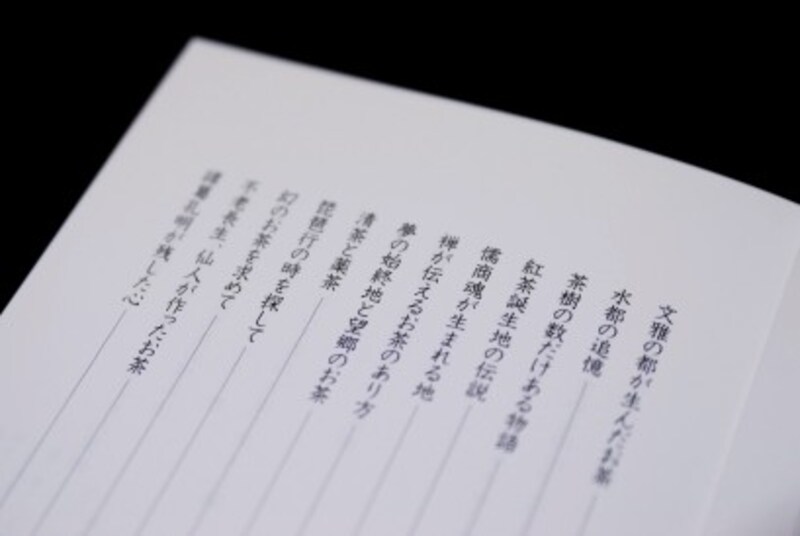 文雅の都が生んだお茶
水都の追憶
茶樹の数だけある物語
紅茶誕生地の伝説
儒商魂が生まれる地
禅が伝えるお茶のあり方
夢の始終地と望郷のお茶
清茶と薬茶
琵琶行の時を探して
幻のお茶を求めて
不老長生、仙人が作ったお茶
諸葛孔明が残した心